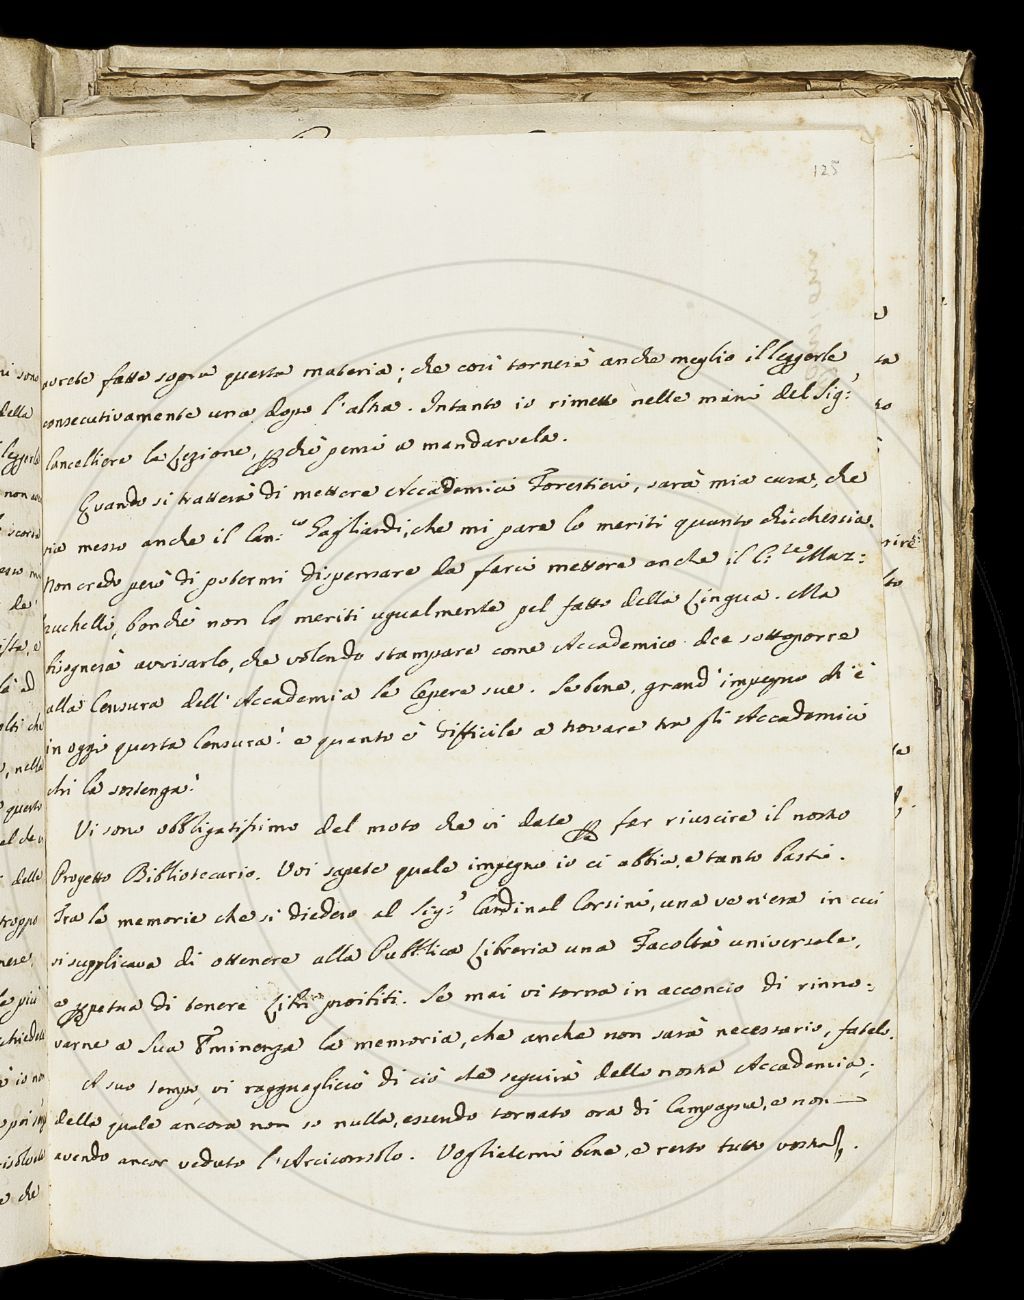 125
avrete fatte sopra questa materia; che così tornerà anche meglio il leggerle
consecutivamente una dopo l'altra. Intanto io rimetto nelle mani del Sig:r
Cancelliere la Lezione, pchè pensi a mandarvela.
Quando si tratterà di mettere Accademici Forestieri, sarà mia cura, che
sia messo anche il Can:co Gagliardi, che mi pare lo meriti quanto chicchessia.
Non credo però di potermi dispensare da farci mettere anche il C:te Maz:
zuchelli, benchè non lo meriti ugualmente pel fatto della Lingua. Ma
bisognerà avvisarlo, che volendo stampare come Accademico dee sottoporre
alla Censura dell'Accademia le Opere sue. Sebene, grand'impegno di è
in oggi questa Censura! e quanto è difficile a trovare tra gli Accademici
chi la sostenga!
Vi sono obbligatissimo del moto che vi date p far riuscire il nostro
Progetto Bibliotecario. Voi sapete quale impegno io ci abbia, e tanto basti.
Tra le memorie che si diedero al Sig:r Cardinal Corsini, una ve n'era in cui
si supplicava di ottenere alla Pubblica Libreria una Facoltà universale,
e ppetua di tenere Libri proibiti. Se mai vi torna in acconcio di rinno:
varne a Sua Eminenza la memoria, che anche non sarà necessario, fatelo.
A suo tempo vi ragguaglierò di ciò che seguirà della nostra Accademia;
della quale ancora non so nulla, essendo tornato ora di Campagna, e non
avendo ancor veduto l'Arciconsolo. Voglietemi bene, e resto tutto vostro.